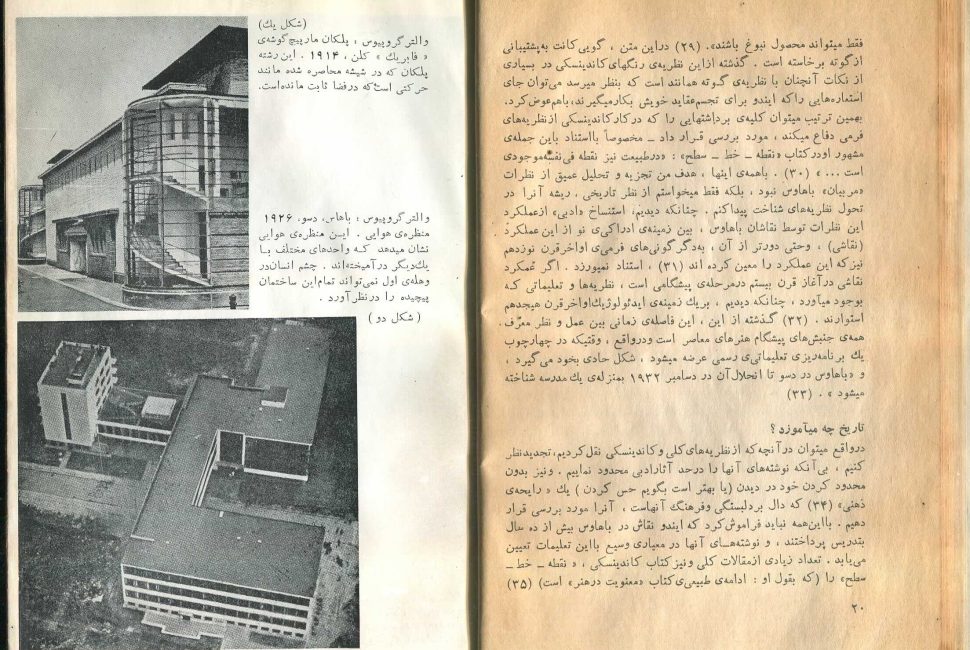 فقط میتواند محصول نبوغ باشند». (۲۹) دراین متن ، گویی کانت به‌پشتیبانی
ازگوته برخاسته است . گذشته ازاین نظریه‌ی رنگهای کاندینسکی در بسیاری
از نکات آنچنان با نظریه‌ی گوته همانند است که بنظر میرسد می‌توان جای
استعاره‌هایی راکه ایندو برای تجسم‌عقاید خویش بکارمیگیرند، باهم‌عوض‌کرد.
بهمین ترتیب میتوان کلیه‌ی برداشتهایی را که درکارکاندینسکی ازنظریه‌های
فرمی دفاع میکند ، مورد بررسی قرار داد ــ مخصوصاً بااستناد باین جمله‌ی
مشهور اودرکتاب «نقطه ــ خط ــ سطح» : «درطبیعت نیز نقطه فی‌نفسه‌موجودی
است ... » (۳۰) . باهمه‌ی اینها ، هدف من تجزیه و تحلیل عمیق از نظرات
«مربیان» باهاوس نبود ، بلکه فقط میخواستم از نظر تاریخی ، ریشه آنرا در
تحول نظریه‌های شناخت پیداکنم . چنانکه دیدیم، استنساخ «ادبی» ازعملکرد
این نظرات توسط نقاشان باهاوس ، بین زمینه‌ی ادراکی‌ی نو از این‌عملکرد
(نقاشی) ، وحتی دورتر از آن ، به‌دگرگونی‌های فرمی‌ی اواخرقرن نوزدهم
نیز که این عملکرد را معین کرده اند (۳۱) ، استناد نمیورزد . اگر عملکرد
نقاشی درآغاز قرن بیستم درمرحله‌ی پیشگامی است ، نظریه‌ها و تعلیماتی که
بوجود میآورد ، چنانکه دیدیم ، بریك زمینه‌ی ایدئولوژیك‌اواخر قرن هیجدهم
استوارند . (۳۲) گذشته از این ، این فاصله‌ی زمانی بین عمل و نظر معرّف
همه‌ی جنبش‌های پیشگام هنرهای معاصر است ودرواقع ، وقتیکه در چهارچوب
یك برنامه‌ریزی تعلیماتی‌ی رسمی عرضه میشود ، شکل حادی بخود می‌گیرد ،
و «باهاوس در دسو تا انحلال‌آن در دسامبر ۱۹۳۲ بمنزله‌ی یك مدرسه شناخته
میشود » . (۳۳)
تاریخ چه میآموزد ؟
درواقع میتوان درآنچه‌که ازنظریه‌های‌کلی وکاندینسکی نقل‌کردیم، تجدیدنظر
کنیم ، بی‌آنکه نوشته‌های آنها را درحد آثارادبی محدود نماییم . ونیز بدون
محدود کردن خود در دیدن (یا بهتر است بگویم حس کردن ) یك « رایحه‌ی
ذهنی» (۳۴) که دال بردلبستگی وفرهنگ آنهاست ، آنرا مورد بررسی قرار
دهیم . بااین‌همه نباید فراموش‌کرد که ایندو نقاش در باهاوس بیش از ده سال
بتدریس پرداختند ، و نوشته‌هــای آنها در معیاری وسیع بااین تعلیمات تعیین
می‌یابد . تعداد زیادی ازمقالات کلی ونیز کتاب کاندینسکی ، « نقطه ــ خط ــ
سطح» را (که بقول او : ادامه‌ی طبیعی‌ی کتاب «معنویت درهنر» است) (۳۵)
۲۰
(شکل یك)
والترگروپیوس ، پلکان مارپیچ‌گوشه‌ی
« فابریك » کلن ، ۱۹۱۴ . این رشته
پلکان که در شیشه محاصره شده مانند
حرکتی است‌که درفضا ثابت مانده‌است.
والترگروپیوس ؛ باهاس، دسو. ۱۹۲۶
منظره‌ی هوایی . ایــن منظره‌ی هوایی
نشان میدهد کــه واحدهای مختلف بــا
یك‌دیگر درآمیخته‌انــد . چشم انسان‌در
وهله‌ی اول نمی‌تواند تمام‌این ساختمان
پیچیده را درنظرآورد .
( شکل دو )